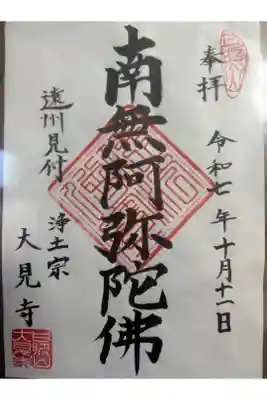 奉拝
令和七年十月十一日
南無阿弥陀佛
遠州見付
浄土宗
大見寺